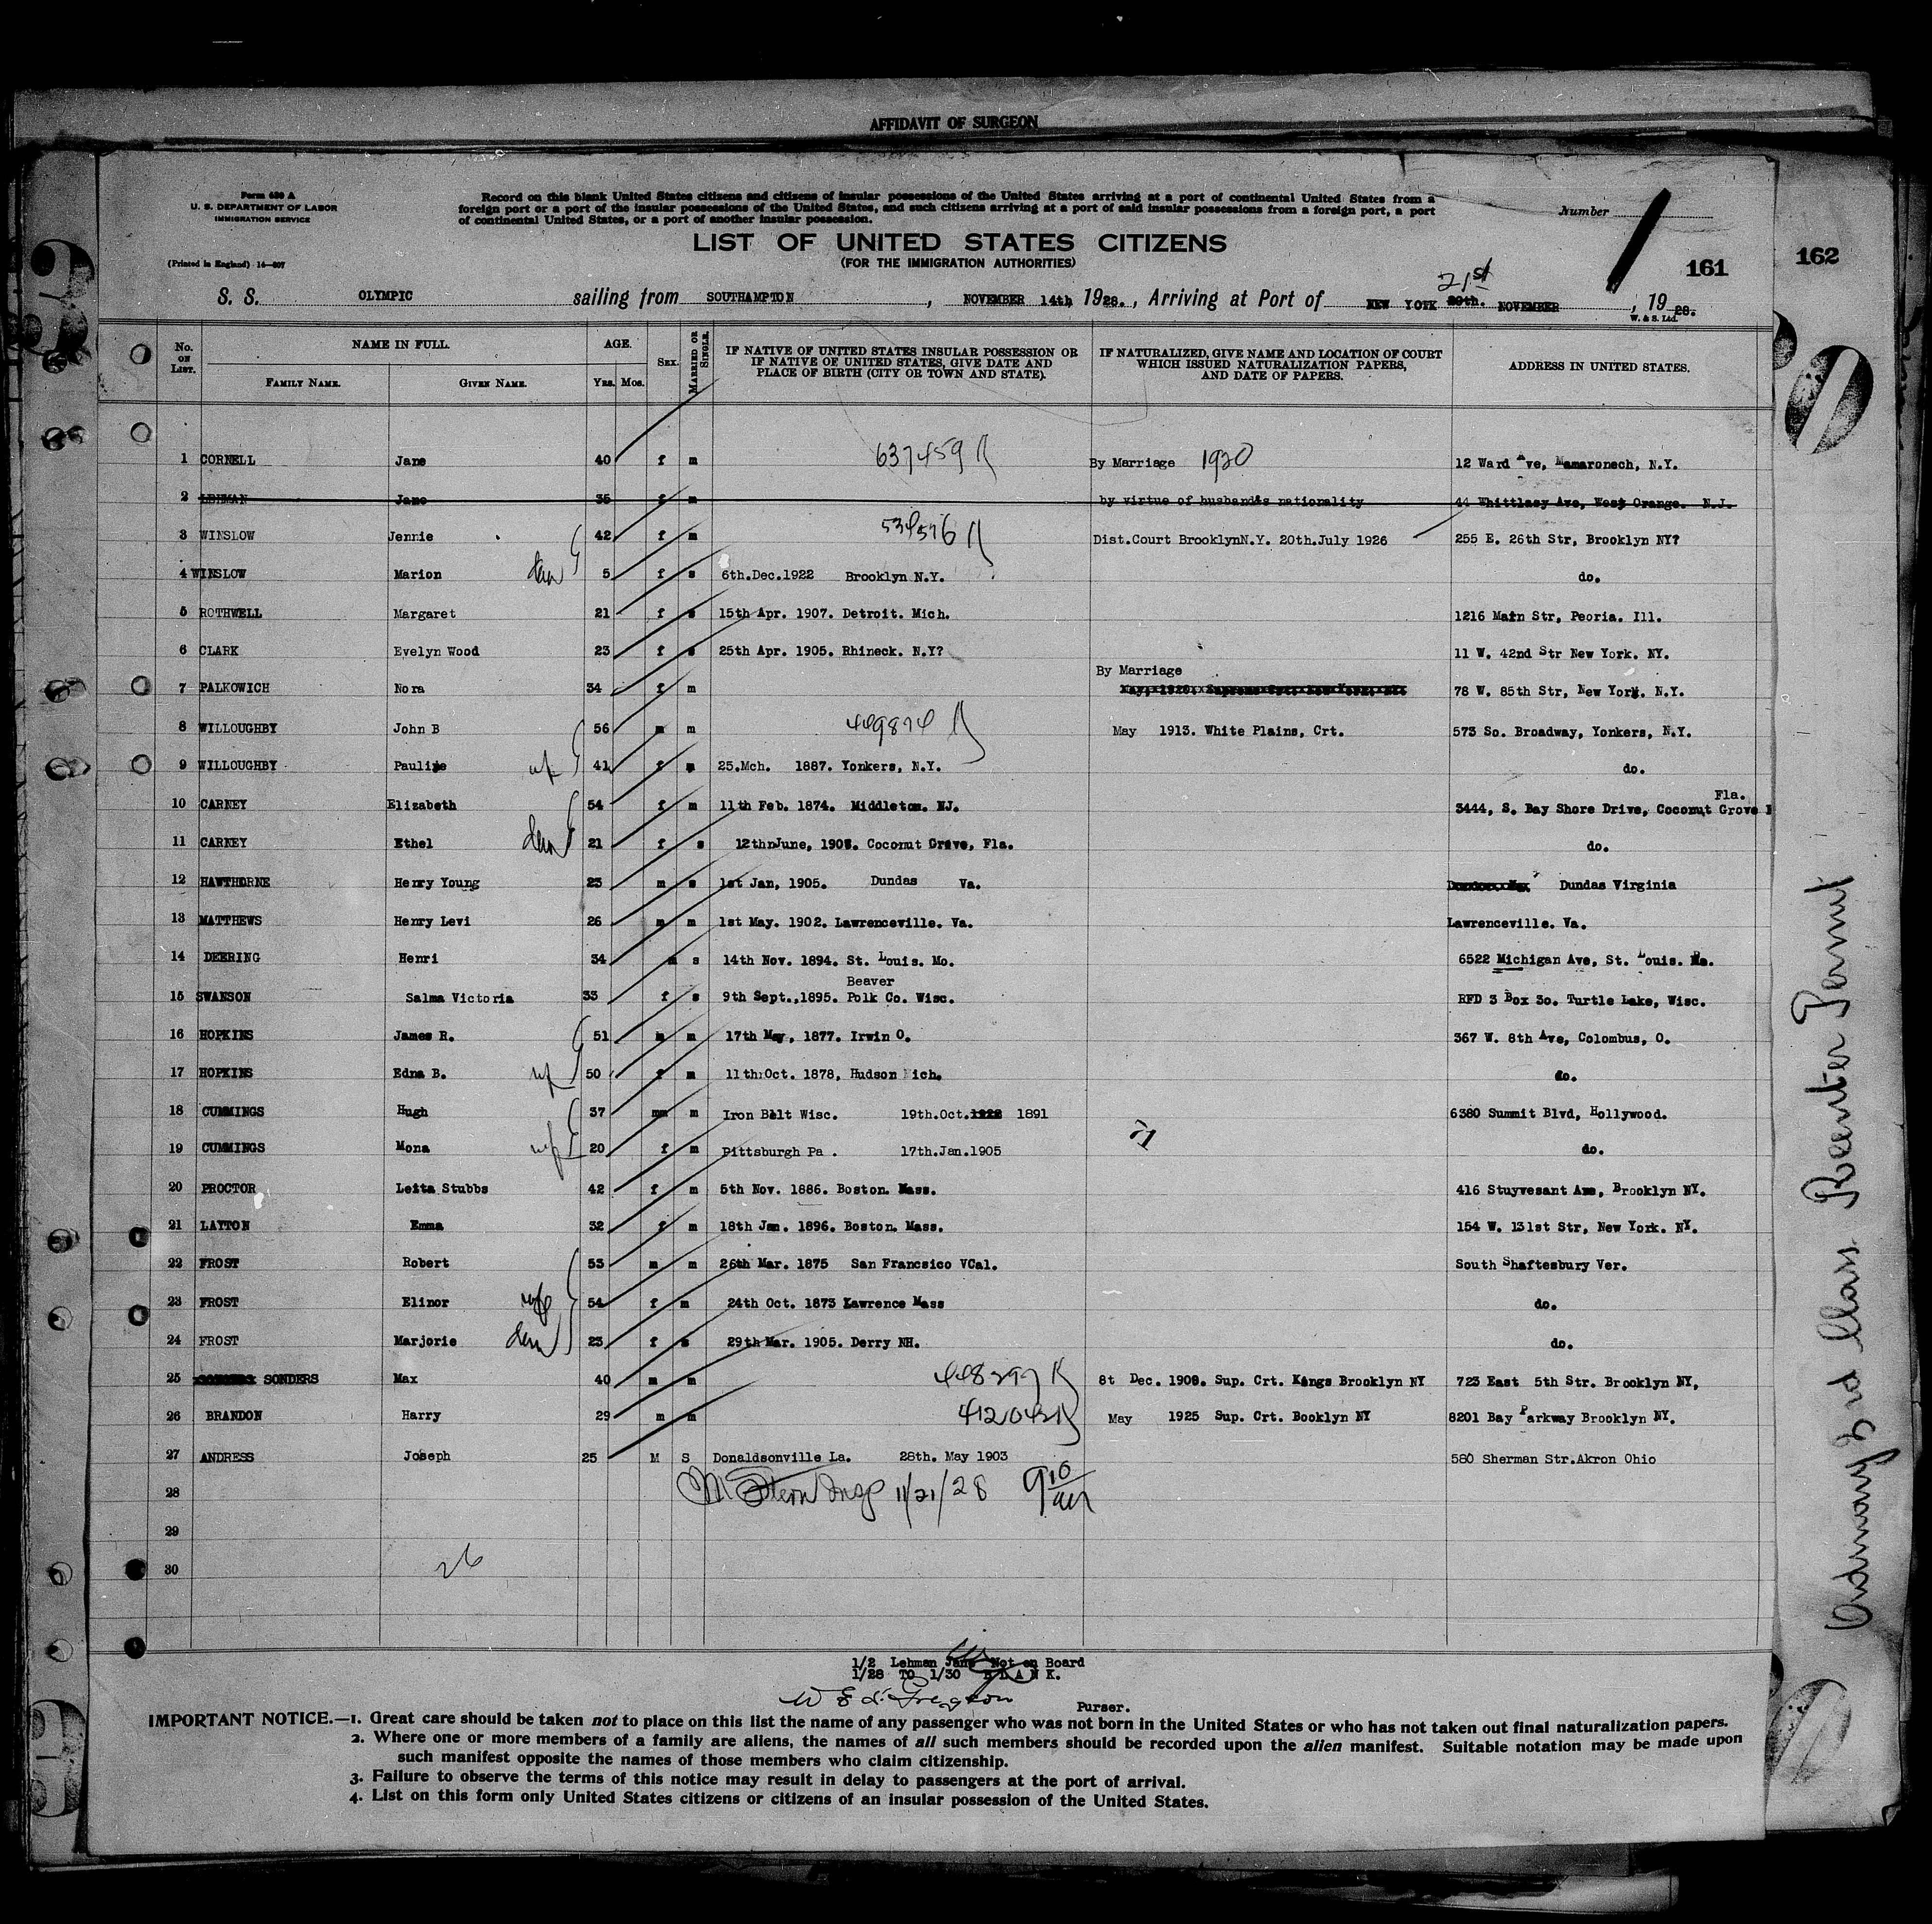 AFFIDAVIT OF SURGEON
Form 630 A
U. S. DEPARTMENT OF LABOR
IMMIGRATION SERVICE
(Printed in England) 14—507
Record on this blank United States citizens and citizens of insular possessions of the United States arriving at a port of continental United States from a
foreign port or a port of the insular possessions of the United States, and such citizens arriving at a port of said insular possessions from a foreign port, a port
of continental United States, or a port of another insular possession.
Number
LIST OF UNITED STATES CITIZENS
(FOR THE IMMIGRATION AUTHORITIES)
161
162
S. S. OLYMPIC sailing from SOUTHAMPTON, NOVEMBER 14th 1928., Arriving at Port of NEW YORK 20th. 21st NOVEMBER, 1928.
W. & S. Ltd.
No. ON LIST. NAME IN FULL. AGE. SEX. MARRIED OR SINGLE. IF NATIVE OF UNITED STATES INSULAR POSSESSION OR IF NATIVE OF UNITED STATES, GIVE DATE AND PLACE OF BIRTH (CITY OR TOWN AND STATE). IF NATURALIZED, GIVE NAME AND LOCATION OF COURT WHICH ISSUED NATURALIZATION PAPERS, AND DATE OF PAPERS. ADDRESS IN UNITED STATES.
FAMILY NAME. GIVEN NAME. YRS. MOS.
1 CORNELL Jane 40 f m 637459 By Marriage 1920 12 Ward Ave, Mamaronech, N.Y.
2 LEHMAN Jane 35 f m by virtue of husbands nationality 44 Whittlesy Ave, West Orange. N.J.
3 WINSLOW Jennie 42 f m 534576 Dist.Court BrooklynN.Y. 20th.July 1926 255 E. 26th Str, Brooklyn NY?
4 WINSLOW Marion 5 f s 6th.Dec.1922 Brooklyn N.Y. do.
5 ROTHWELL Margaret 21 f s 15th Apr. 1907. Detroit. Mich. 1216 Main Str, Peoria. Ill.
6 CLARK Evelyn Wood 23 f s 25th Apr. 1905. Rhineck. N.Y? 11 W. 42nd Str New York. NY.
By Marriage
7 PALKOWICH Nora 34 f m 78 W. 85th Str, New York. N.Y.
8 WILLOUGHBY John B 56 m m 449874 May 1913. White Plains, Crt. 573 So. Broadway, Yonkers, N.Y.
9 WILLOUGHBY Pauline wf 41 f m 25.Mch. 1887. Yonkers, N.Y. do.
10 CARNEY Elizabeth 54 f m 11th Feb. 1874. Middleton. NJ. 3444, S. Bay Shore Drive, Coconut Grove Fla.
11 CARNEY Ethel 21 f s 12thnJune, 1908. Coconut Grove, Fla. do.
12 HAWTHORNE Henry Young 23 m s 1st Jan, 1905. Dundas Va. Dundas Virginia
13 MATTHEWS Henry Levi 26 m m 1st May. 1902. Lawrenceville. Va. Lawrenceville. Va.
14 DEERING Henri 34 m s 14th Nov. 1894. St. Louis. Mo. 6522 Michigan Ave, St. Louis. Mo.
Beaver
15 SWANSON Salma Victoria 33 f s 9th Sept.,1895. Polk Co. Wisc. RFD 3 Box 30. Turtle Lake, Wisc.
16 HOPKINS James R. 51 m m 17th May, 1877. Irwin O. 367 W. 8th Ave, Colombus, O.
17 HOPKINS Edna B. wf 50 f m 11th:Oct. 1878, Hudson ich. do.
18 CUMMINGS Hugh 37 mm m Iron Belt Wisc. 19th.Oct.1928 1891 6380 Summit Blvd, Hollywood.
19 CUMMINGS Mona wf 20 f m Pittsburgh Pa . 17th.Jan.1905 do.
20 PROCTOR Leita Stubbs 42 f m 5th Nov. 1886. Boston. Mass. 416 Stuyvesant Ave, Brooklyn NY.
21 LAYTON Emma 32 f m 18th Jan. 1896. Boston. Mass. 154 W. 131st Str, New York. NY.
22 FROST Robert 53 m m 26th Mar. 1875 San Francsico VCal. South Shaftesbury Ver.
23 FROST Elinor wife 54 f m 24th Oct. 1873 Lawrence Mass do.
24 FROST Marjorie 23 f s 29th Mar. 1905. Derry NH. do.
25 SONDERS Max 40 m m 448297 8t Dec. 1908. Sup. Crt. Kings Brooklyn NY 723 East 5th Str. Brooklyn NY,
26 BRANDON Harry 29 m m 412042 May 1925 Sup. Crt. Booklyn NY 8201 Bay Parkway Brooklyn NY.
27 ANDRESS Joseph 25 M S Donaldsonville La. 28th. May 1903 580 Sherman Str.Akron Ohio
28 M Stern Insp 11/21/28 9 10 am
29
30
26
1/2 Lehman Jane Not on Board
1/28 TO 1/30 B L A N K.
Purser.
IMPORTANT NOTICE.—1. Great care should be taken not to place on this list the name of any passenger who was not born in the United States or who has not taken out final naturalization papers.
2. Where one or more members of a family are aliens, the names of all such members should be recorded upon the alien manifest. Suitable notation may be made upon
such manifest opposite the names of those members who claim citizenship.
3. Failure to observe the terms of this notice may result in delay to passengers at the port of arrival.
4. List on this form only United States citizens or citizens of an insular possession of the United States.
3rd Class Reenter Permit